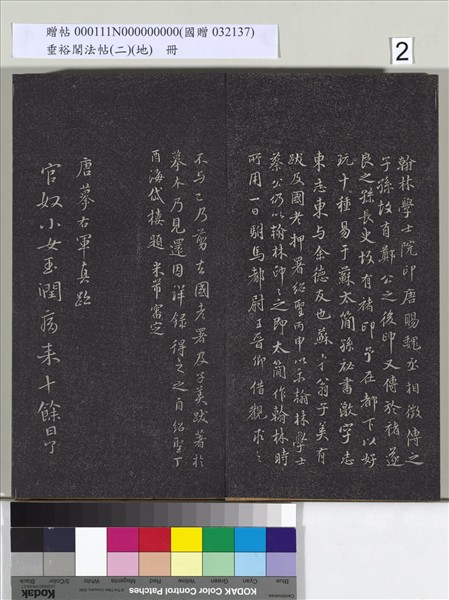 贈帖 000111N000000000(國贈 032137)
垂裕閣法帖(二)(地) 冊
2
翰林學士院印唐賜魏丞相徵傳之
子孫故首鄭公之後印又傳於褚遂
良之孫長史故有褚印予在都下以好
玩十種易于蘇太簡孫祕書激字志
東志東与余德友也蘇才翁子美有
跋及國老押署紹聖丙申以示翰林學士
蔡公仍以翰林印印之即太簡作翰林時
所用一日駙馬都尉王晉卿借觀求之
不与已乃剪去國老署及子美跋著於
摹本乃見還因詳錄得之之自紹聖丁
酉海岱樓題 米芾審定
唐摹右軍真跡
官奴小女玉潤病來十餘日了
Blue Cyan Green Yellow Red Magenta White 3/Color Black
Kodak
KODAK Color Control Patches